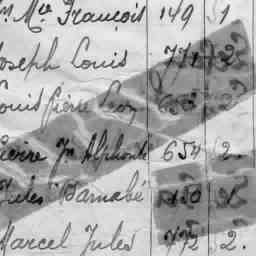 Mie François 149 1
Joseph Louis 771 2
Louis Pierre Léon 2
Pierre Jn Alphonse 654 2.
Jules Barnabé 150 1
Marcel Jules 772 2.